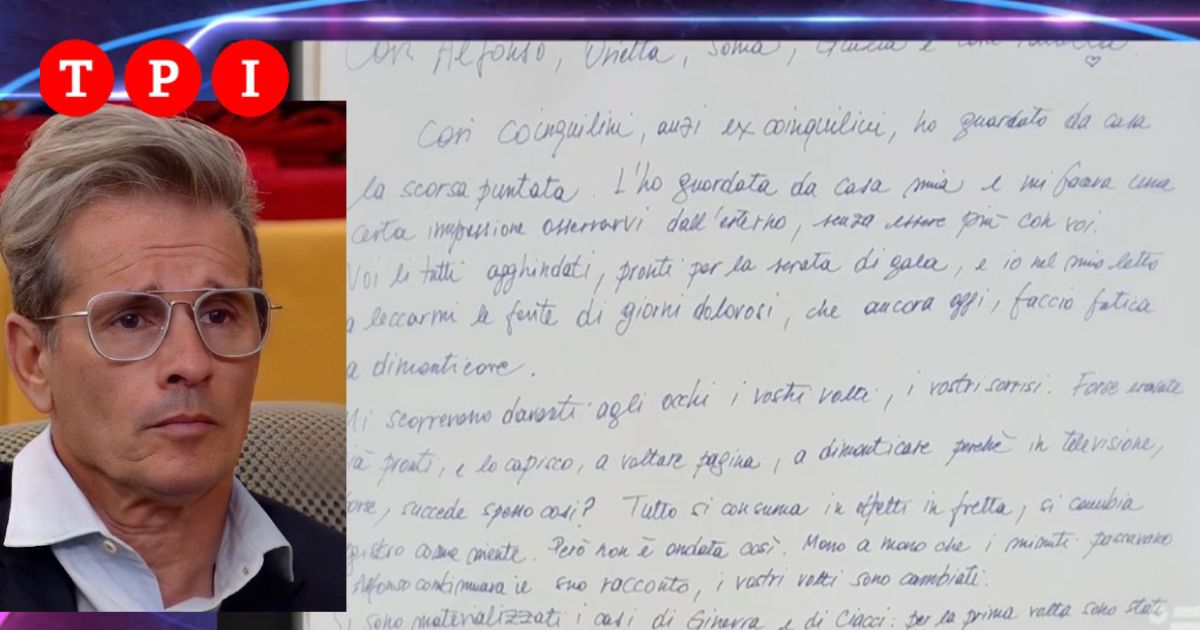 TPI
Cari Alfonso, Orietta, Sonia, Giulia e
Cari Coinquilini, anzi ex coinquilini, ho guardato da casa
la scorsa puntata. L'ho guardata da casa mia e mi faceva una
certa impressione osservarvi dall'esterno, senza essere più con voi.
Voi lì tutti agghindati, pronti per la serata di gala, e io nel mio letto
a leccarmi le ferite di giorni dolorosi, che ancora oggi, faccio fatica
a dimenticare.
Mi scorrevano davanti agli occhi i vostri volti, i vostri sorrisi. Forse eravate
ià pronti, e lo capisco, a voltare pagina, a dimenticare perchè in televisione,
forse, succede spesso così? Tutto si consuma in effetti in fretta, si cambia
gistro come niente. Però non è andata così. Mano a mano che i minuti passavano
Alfonso continuava il suo racconto, i vostri volti sono cambiati.
Si sono materializzati i casi di Ginevra e di Ciacci: per la prima volta sono stati